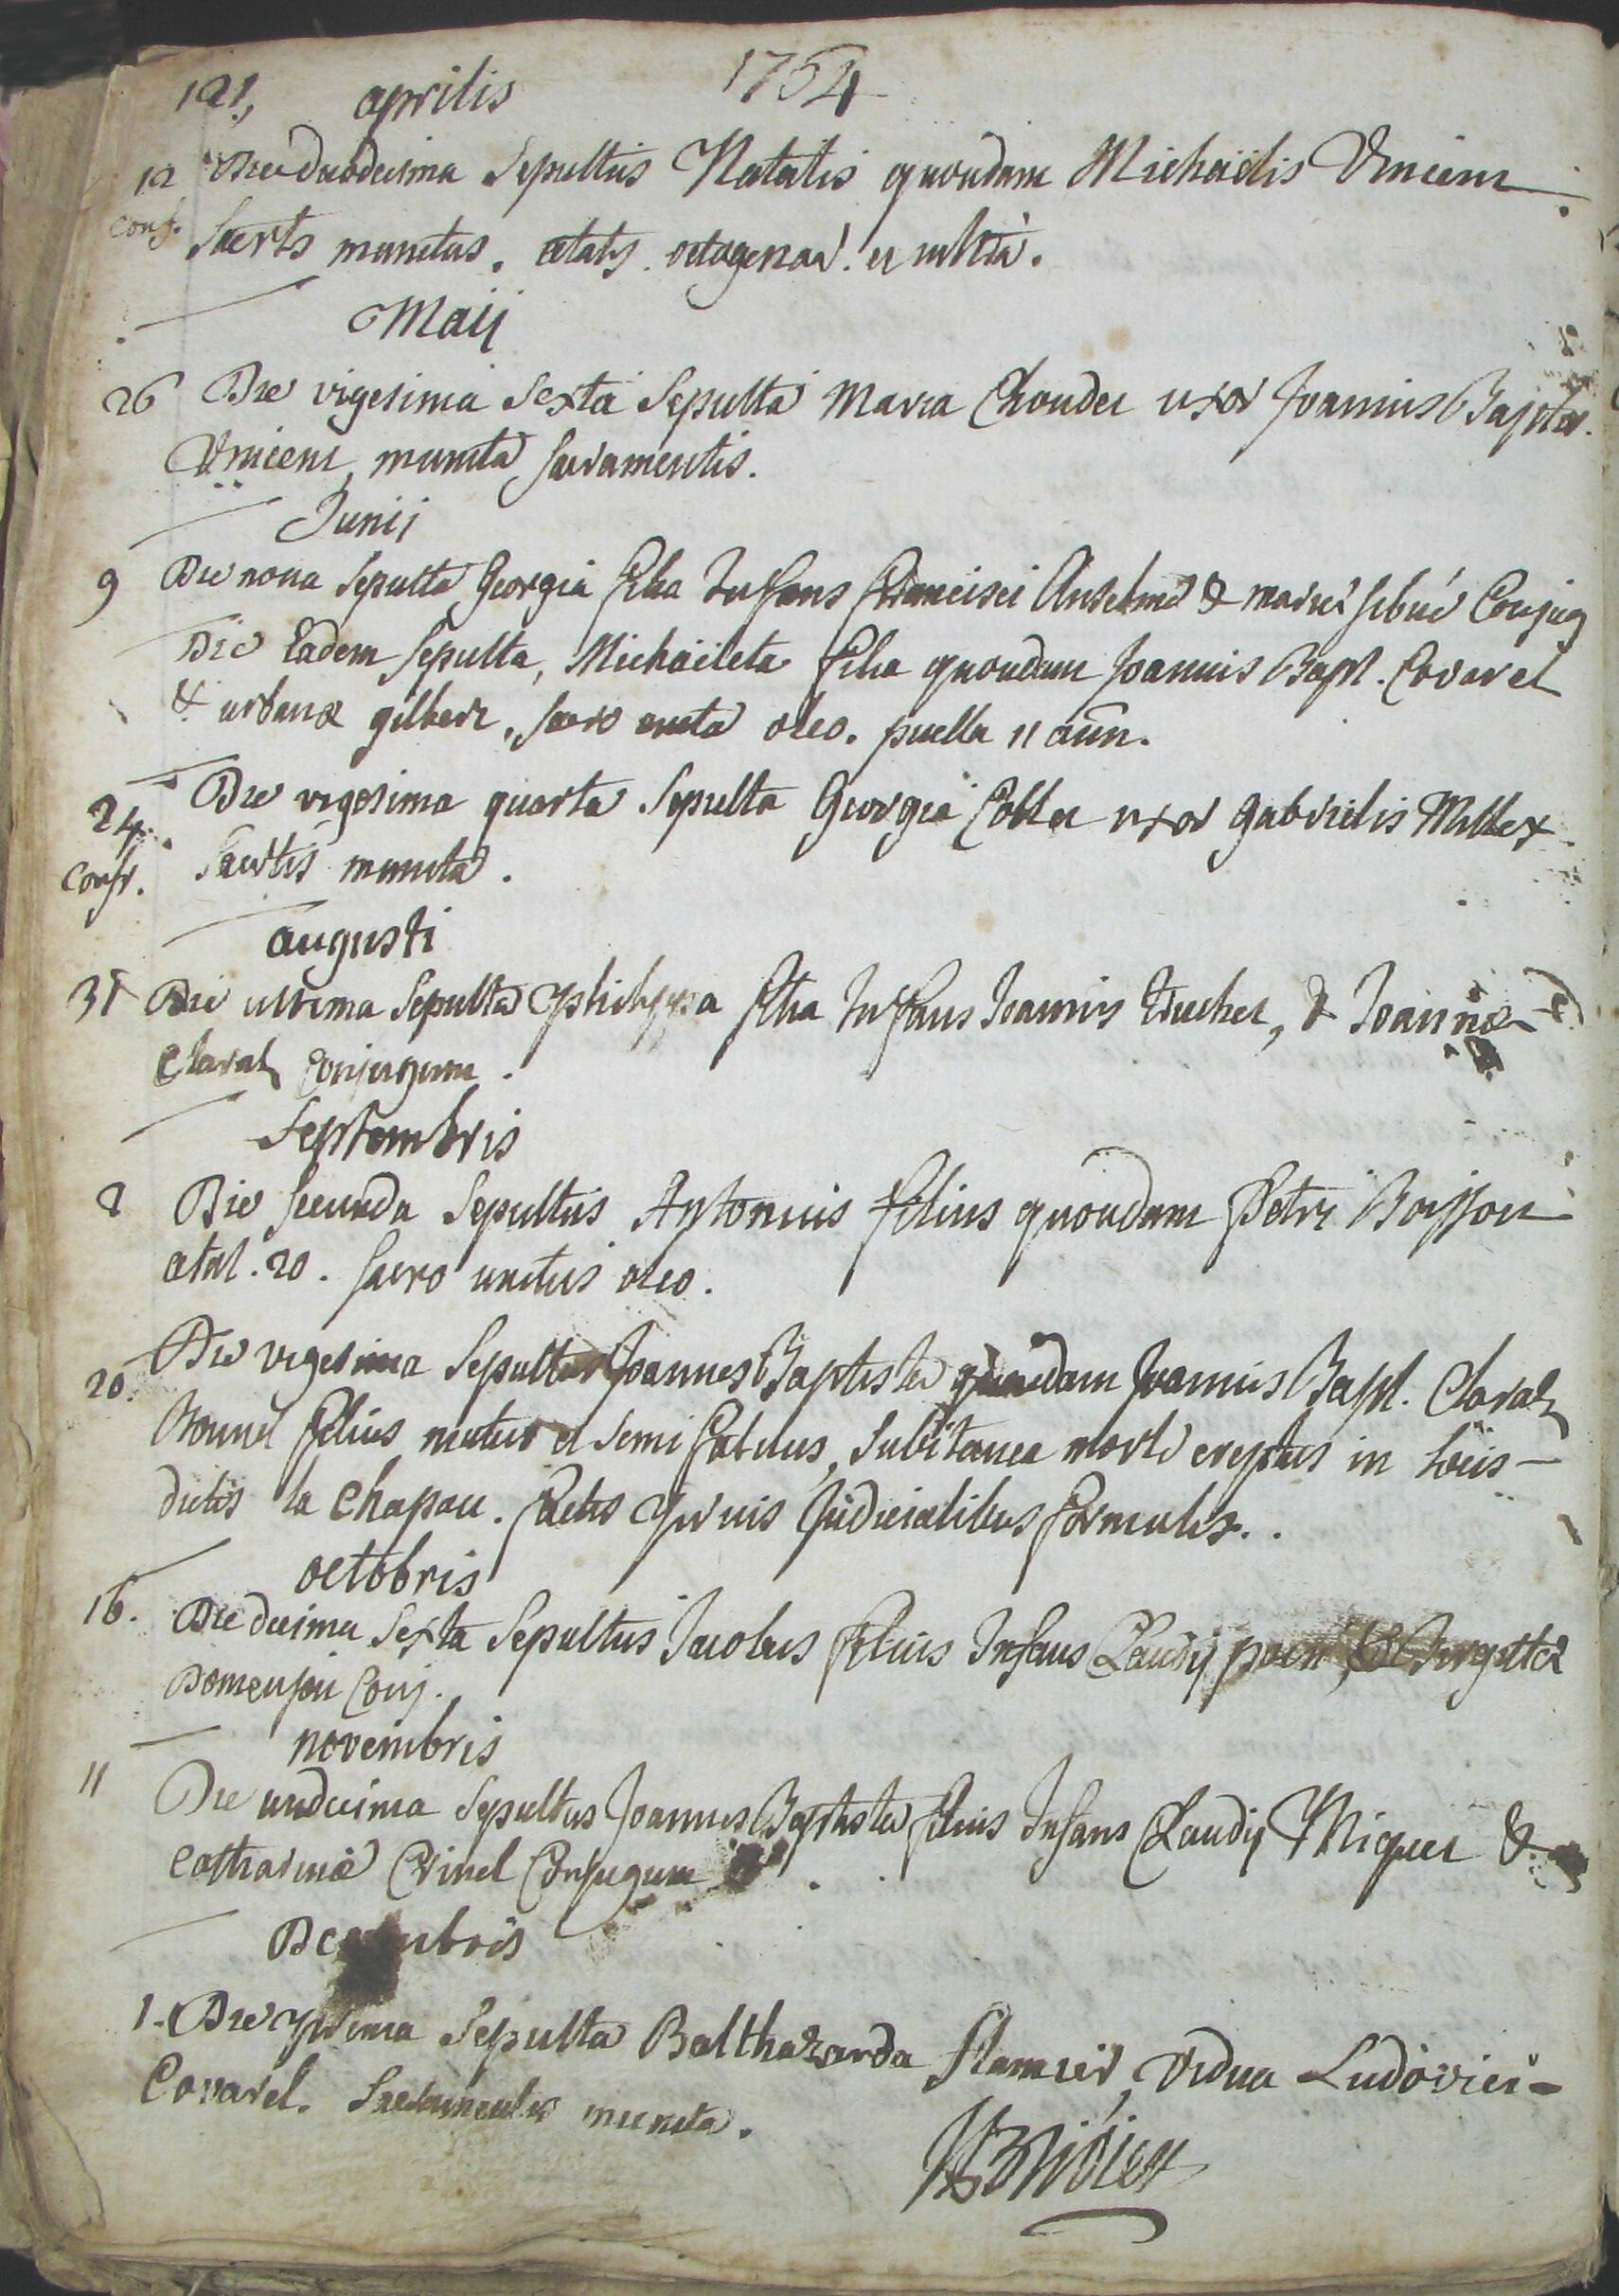 121, aprilis 1754
12 Die duodecima Sepultus Natalis quondam Michaëlis Vincent
conf. Sacrts munitus. ætatis octogenar. et ultra.
Maij
26 Die vigesima Sexta Sepulta Maria Choudet uxor Joannis Baptæ.
Vincent, munita sacramentis.
Junij
9 Die nona Sepulta Georgia filia Infans Francisci Anselme & mariæ Conjug
Die Eadem sepulta, Michaëleta filia quondam Joannis Bapt. Covarel
& urbanæ gilbert, sacro uncta oleo. puella 11 ann.
24. Die vigesima quarta Sepulta Georgia Collet uxor gabrielis Millex
Confr. Sacrtis munita.
augusti
31 Die ultima Sepulta philippa filia Infans Joannis Truchet, & Joannæ
Claraz Conjugum.
Septembris
2 Die secunda Sepultus Antonius filius quondam Petri Boisson
ætat. 20. sacro unctus oleo.
20. Die vigesima Sepultus Joannes Baptista quondam Joannis Bapt. Claraz
filius mutus et semi fatuus, Subitanea morte ereptus in locis
dictis la Chapau. factis prius Judicialibus formulis.
octobris
16. Die decima sexta Sepultus Jacobus filius Infans Claudij &
Domenjon Conj.
novembris
11 Die undecima Sepultus Joannes Baptista filius Infans Claudij Miquet &
Catharinæ Crinel Conjugum
Decembris
1. Die prima Sepulta Balthazarda flamier, vidua Ludovici
Covarel. Sacramentis munita.